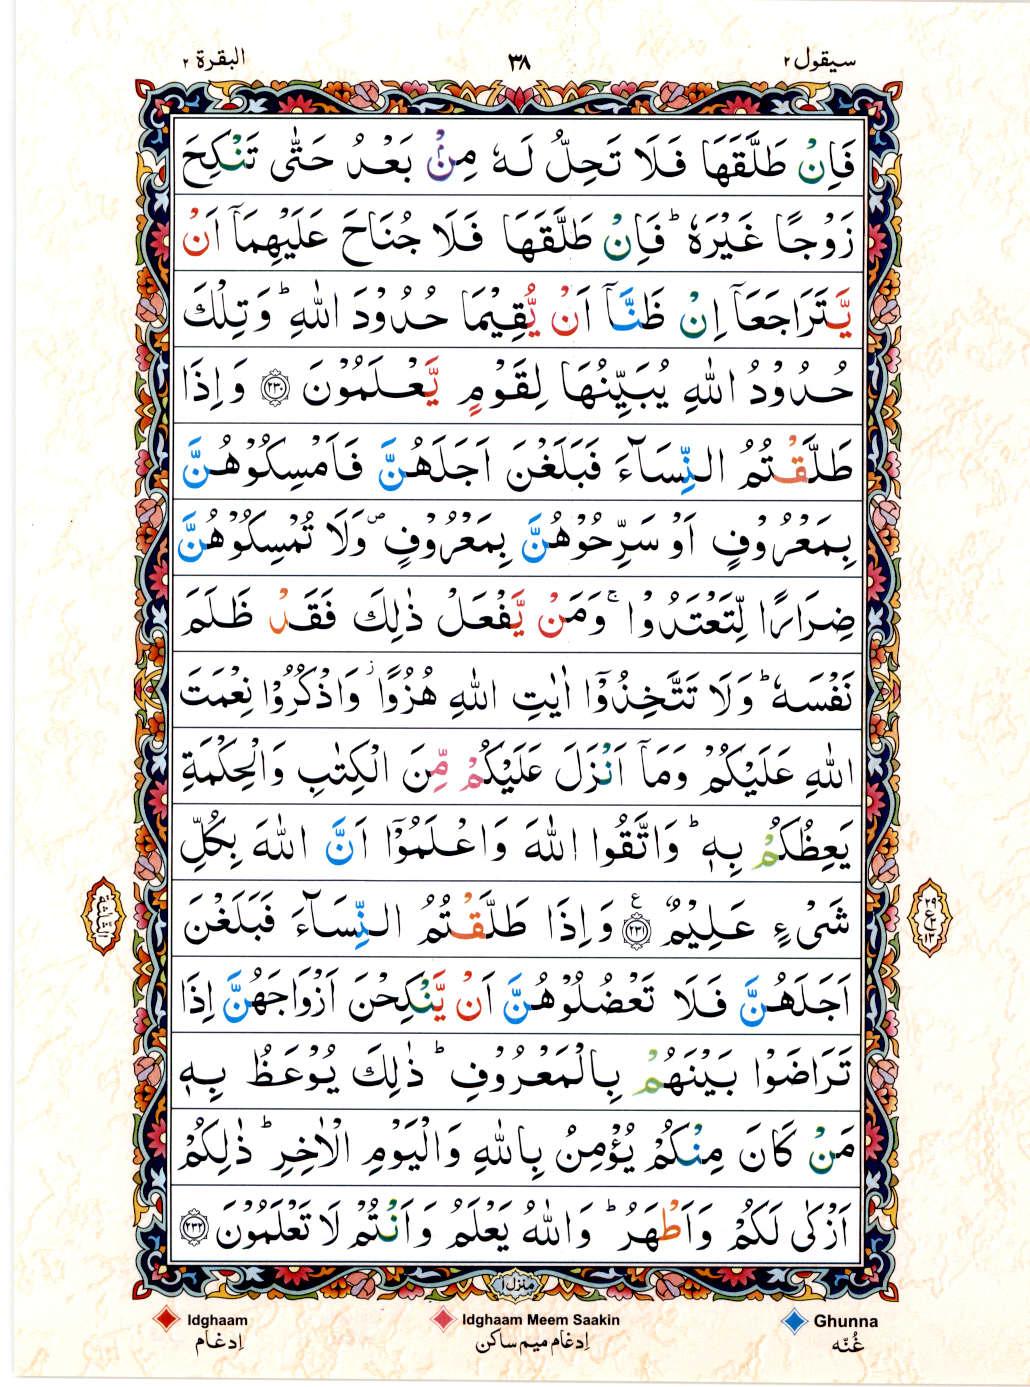 سيقول ٢
٣٨
البقرة ٢
فَاِنْ طَلَّقَهَا فَلَا تَحِلُّ لَهٗ مِنْۢ بَعْدُ حَتّٰى تَنْكِحَ
زَوْجًا غَيْرَهٗ ؕ فَاِنْ طَلَّقَهَا فَلَا جُنَاحَ عَلَيْهِمَاۤ اَنْ
يَّتَرَاجَعَاۤ اِنْ ظَنَّاۤ اَنْ يُّقِيْمَا حُدُوْدَ اللّٰهِ ؕ وَتِلْكَ
حُدُوْدُ اللّٰهِ يُبَيِّنُهَا لِقَوْمٍ يَّعْلَمُوْنَ ﴿٢٣٠﴾ وَاِذَا
طَلَّقْتُمُ النِّسَآءَ فَبَلَغْنَ اَجَلَهُنَّ فَاَمْسِكُوْهُنَّ
بِمَعْرُوْفٍ اَوْ سَرِّحُوْهُنَّ بِمَعْرُوْفٍ ۪ وَلَا تُمْسِكُوْهُنَّ
ضِرَارًا لِّتَعْتَدُوْا ۚ وَمَنْ يَّفْعَلْ ذٰلِكَ فَقَدْ ظَلَمَ
نَفْسَهٗ ؕ وَلَا تَتَّخِذُوْۤا اٰيٰتِ اللّٰهِ هُزُوًا ؗ وَاذْكُرُوْا نِعْمَتَ
اللّٰهِ عَلَيْكُمْ وَمَاۤ اَنْزَلَ عَلَيْكُمْ مِّنَ الْكِتٰبِ وَالْحِكْمَةِ
يَعِظُكُمْ بِهٖ ؕ وَاتَّقُوا اللّٰهَ وَاعْلَمُوْۤا اَنَّ اللّٰهَ بِكُلِّ
شَىْءٍ عَلِيْمٌ ﴿٢٣١﴾ ع وَاِذَا طَلَّقْتُمُ النِّسَآءَ فَبَلَغْنَ
اَجَلَهُنَّ فَلَا تَعْضُلُوْهُنَّ اَنْ يَّنْكِحْنَ اَزْوَاجَهُنَّ اِذَا
تَرَاضَوْا بَيْنَهُمْ بِالْمَعْرُوْفِ ؕ ذٰلِكَ يُوْعَظُ بِهٖ
مَنْ كَانَ مِنْكُمْ يُؤْمِنُ بِاللّٰهِ وَالْيَوْمِ الْاٰخِرِ ؕ ذٰلِكُمْ
اَزْكٰى لَكُمْ وَاَطْهَرُ ؕ وَاللّٰهُ يَعْلَمُ وَاَنْتُمْ لَا تَعْلَمُوْنَ ﴿٢٣٢﴾
منزل ١
Idghaam
Idghaam Meem Saakin
Ghunna
اِدغام
اِدغام میم ساکن
غُنّه